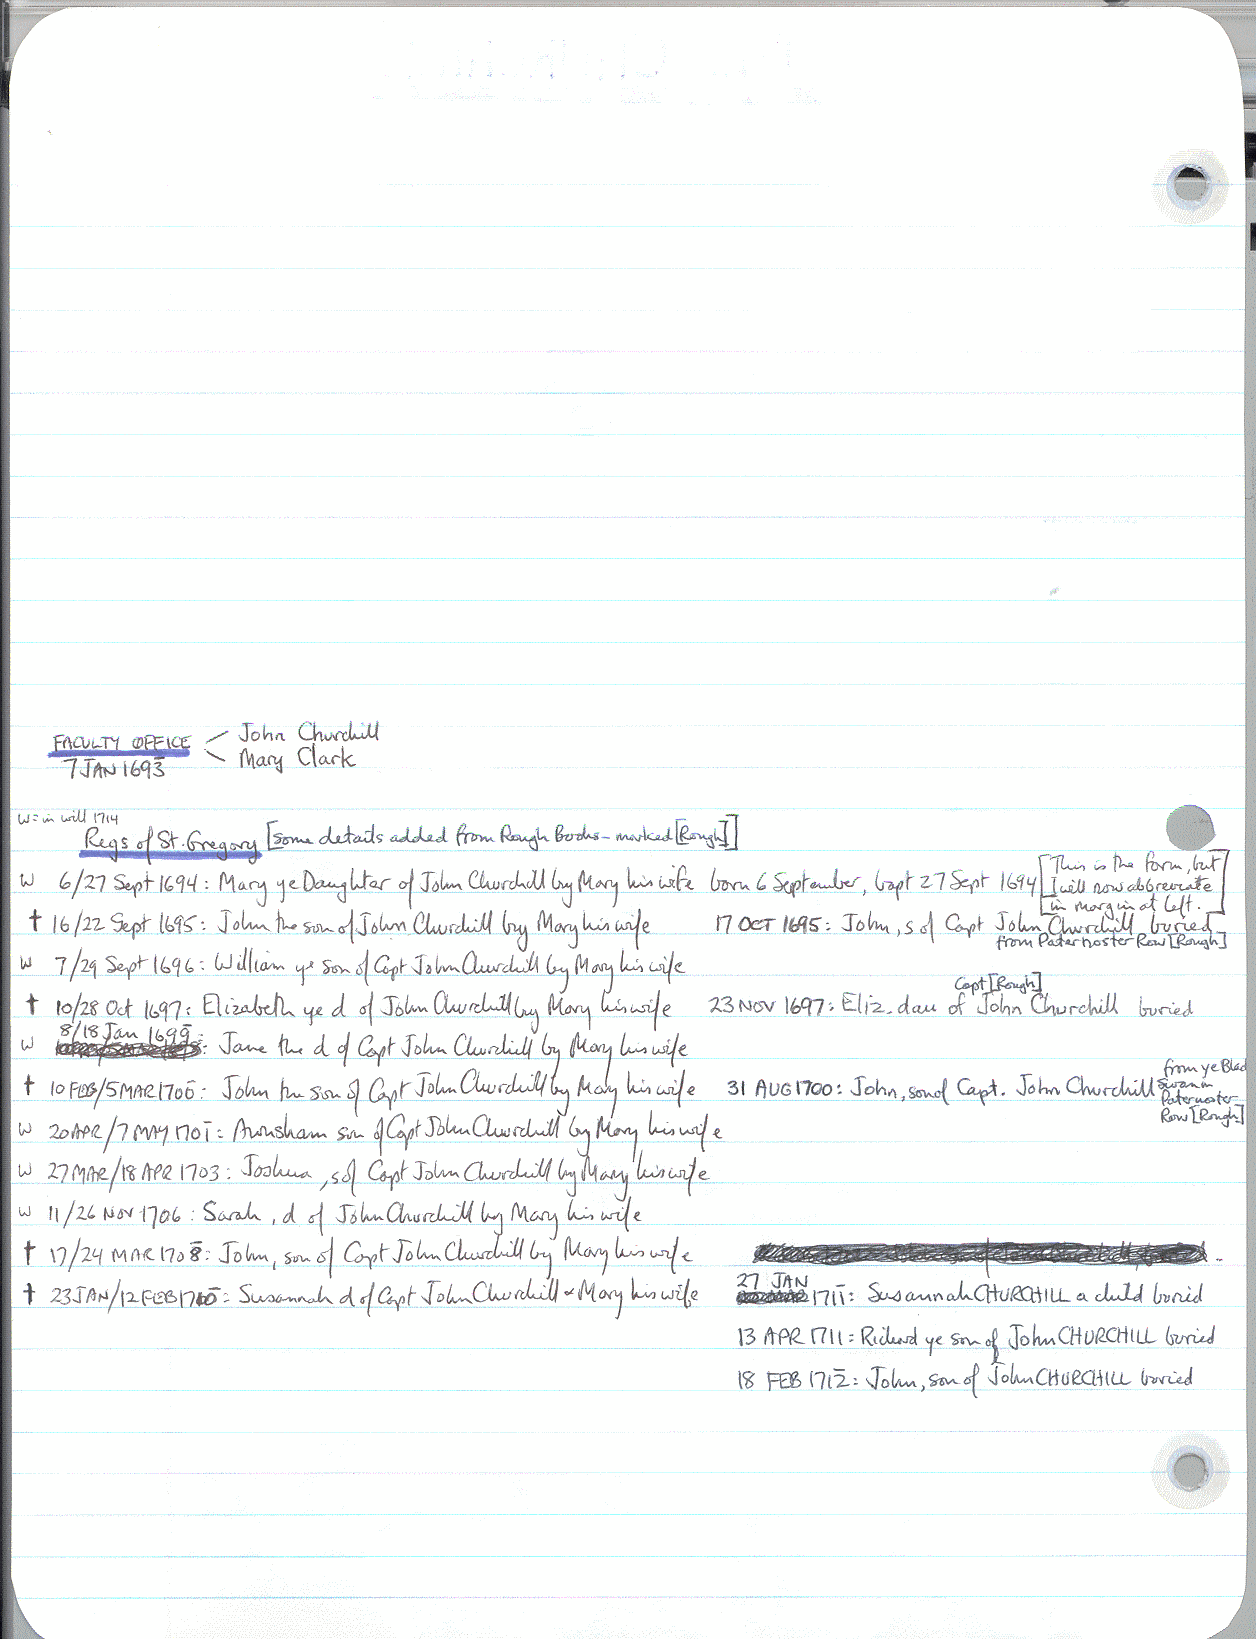 FACULTY OFFICE
7 JAN 1693
John Churchill
Mary Clark
W = in will 1714
Regs of St. Gregory [Some details added from Rough Books - marked [Rough]]
W 6/27 Sept 1694: Mary ye Daughter of John Churchill by Mary his wife born 6 September, bapt 27 Sept 1694
[This is the form, but
I will now abbreviate
in margin at left.]
† 16/22 Sept 1695: John the son of John Churchill by Mary his wife 17 OCT 1695: John, s of Capt John Churchill buried
from Paternoster Row [Rough]
W 7/29 Sept 1696: William ye son of Capt John Churchill by Mary his wife
Capt [Rough]
† 10/28 Oct 1697: Elizabeth ye d of John Churchill by Mary his wife 23 NOV 1697: Eliz. dau of John Churchill buried
8/18 Jan 1699
W : Jane the d of Capt John Churchill by Mary his wife
† 10 FEB/5 MAR 1700: John the son of Capt John Churchill by Mary his wife 31 AUG 1700: John, son of Capt. John Churchill
from ye Black
Swan in
Paternoster
Row [Rough]
W 20 APR/7 MAY 1701: Awnsham son of Capt John Churchill by Mary his wife
W 27 MAR/18 APR 1703: Joshua, s of Capt John Churchill by Mary his wife
W 11/26 NOV 1706: Sarah, d of John Churchill by Mary his wife
† 17/24 MAR 1708: John, son of Capt John Churchill by Mary his wife
† 23 JAN/12 FEB 1710: Susannah d of Capt John Churchill & Mary his wife
27 JAN
1711: Susannah CHURCHILL a child buried
13 APR 1711: Richard ye son of John CHURCHILL buried
18 FEB 1712: John, son of John CHURCHILL buried